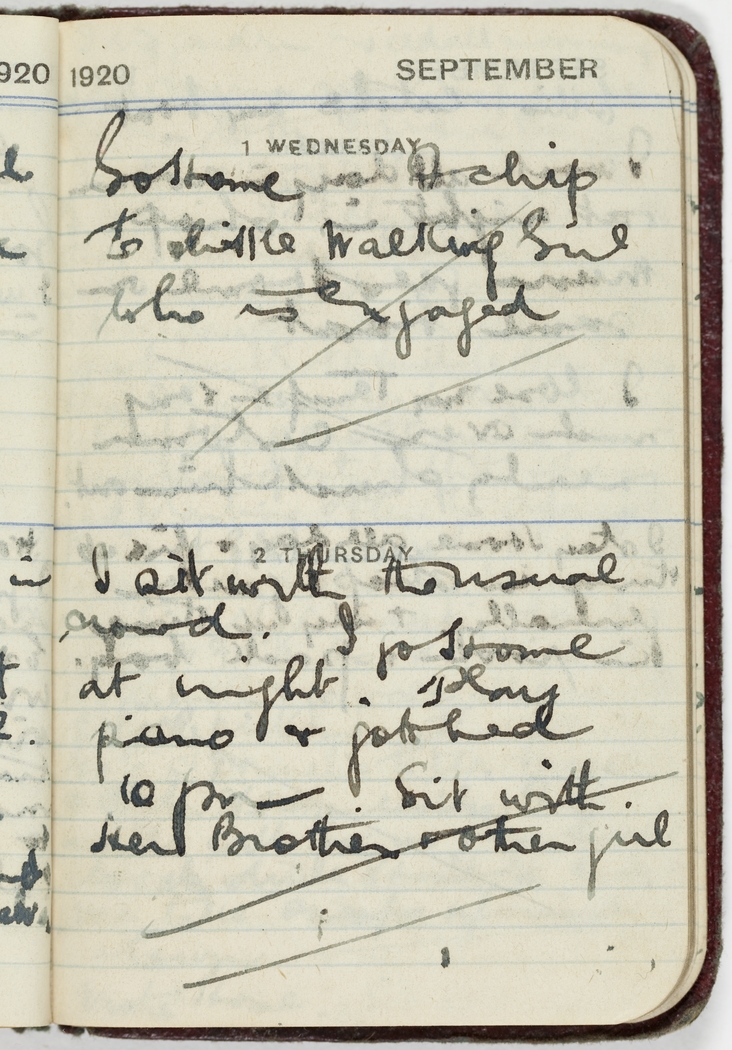 920
1920 SEPTEMBER
1 WEDNESDAY
Go Home & chip
to little Walking Girl
who is Engaged
2 THURSDAY
I sit with the usual
crowd. I go Home
at night. Play
piano &
10 pm — Sit with
Ken Brother & other girl